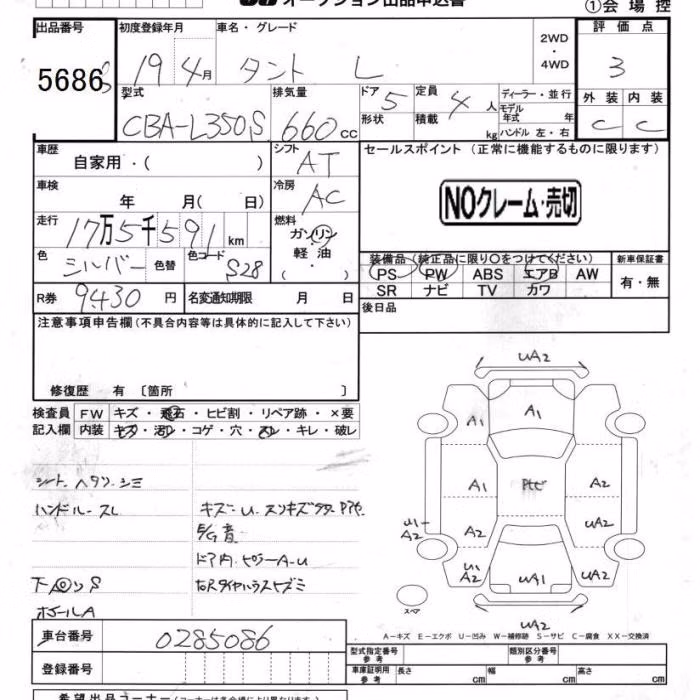 オークション出品申込書
①会場控
出品番号 初度登録年月 車名・グレード 2WD・4WD 評価点
5686 19年4月 タント L 3
型式 排気量 ドア 5 定員 4人 ディーラー・並行 外装 内装
CBA-L350S 660cc 形状 積載 kg モデル年式 年式 ハンドル 左・右 C C
車歴 自家用・( ) シフト AT セールスポイント (正常に機能するものに限ります)
車検 年 月( 日) 冷房 AC NOクレーム・売切
走行 17万5千591km 燃料 ガソリン・軽油・( )
色 シルバー 色替 色コード S28
装備品 (純正品に限り〇をつけてください) 新車保証書
PS PW ABS エアB AW 有・無
SR ナビ TV カワ
R券 9430円 名変通知期限 月 日
後日品
注意事項申告欄(不具合内容等は具体的に記入して下さい)
修復歴 有 〔箇所 〕
検査員記入欄 FW キズ・飛石・ヒビ割・リペア跡・×要
内装 キズ・汚レ・コゲ・穴・スレ・キレ・破レ
シート ヘタリ シミ
ハンドルースレ
キズ・U
ドア内
下
UA2
A1
A1
A1
A2
A2
UA2
U1-A2
U1 A2
UA1
UA2
UA2
スペア
A-キズ E-エクボ U-凹み W-補修跡 S-サビ C-腐食 XX-交換済
車台番号 0285086
登録番号
型式指定番号 参考 類別区分番号 参考
車庫証明用 参考 長さ cm 幅 cm 高さ cm
希望出品コーナー